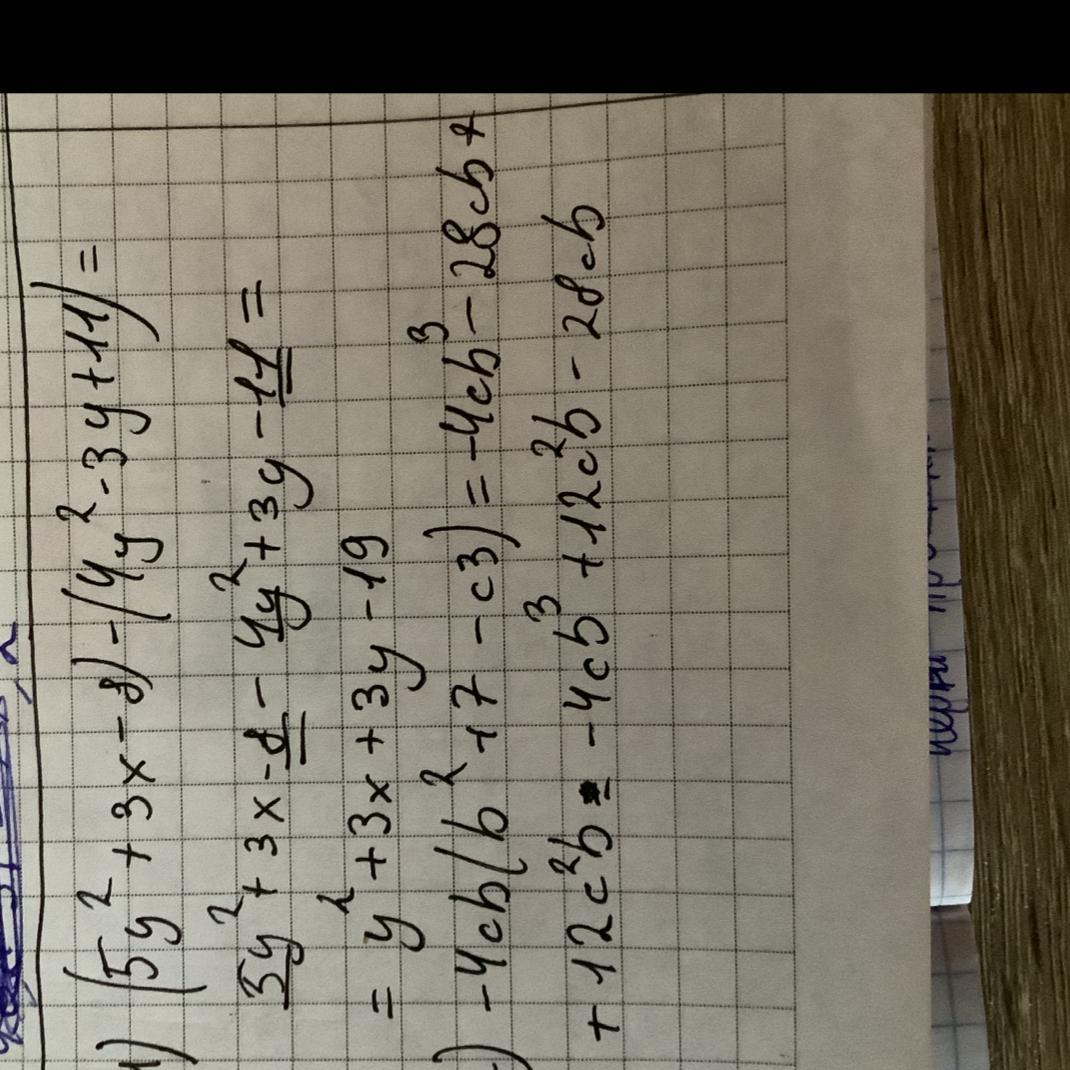 1) (5y² + 3x - 8) - (4y² - 3y + 11) =
5y² + 3x - 8 - 4y² + 3y - 11 =
= y² + 3x + 3y - 19
) -4cb(b² + 7 - c3) = -4cb³ - 28cb +
+ 12c²b = -4cb³ + 12c²b - 28cb